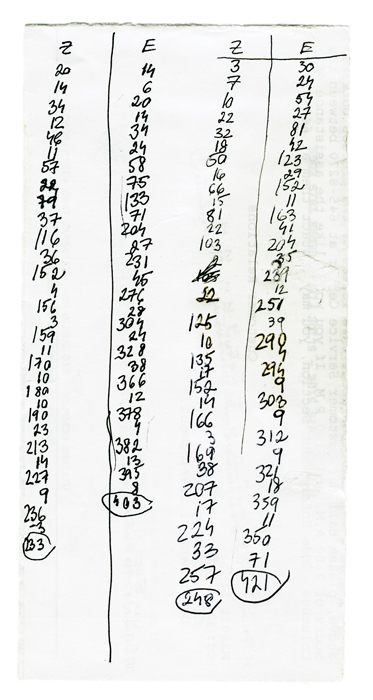 Z
20
14
34
12
46
11
57
22
79
37
116
36
152
4
156
3
159
11
170
10
180
10
190
23
213
14
227
9
236
-3
233
E
14
6
20
14
34
24
58
75
133
71
204
27
231
45
276
28
304
24
328
38
366
12
378
4
382
13
395
8
403
Z
3
7
10
22
32
18
50
16
66
15
81
22
103
22
125
10
135
17
152
14
166
3
169
38
207
17
224
33
257
248
E
30
24
54
27
81
42
123
29
152
11
163
41
204
35
239
12
251
39
290
4
294
9
303
9
312
9
321
18
359
11
350
71
421